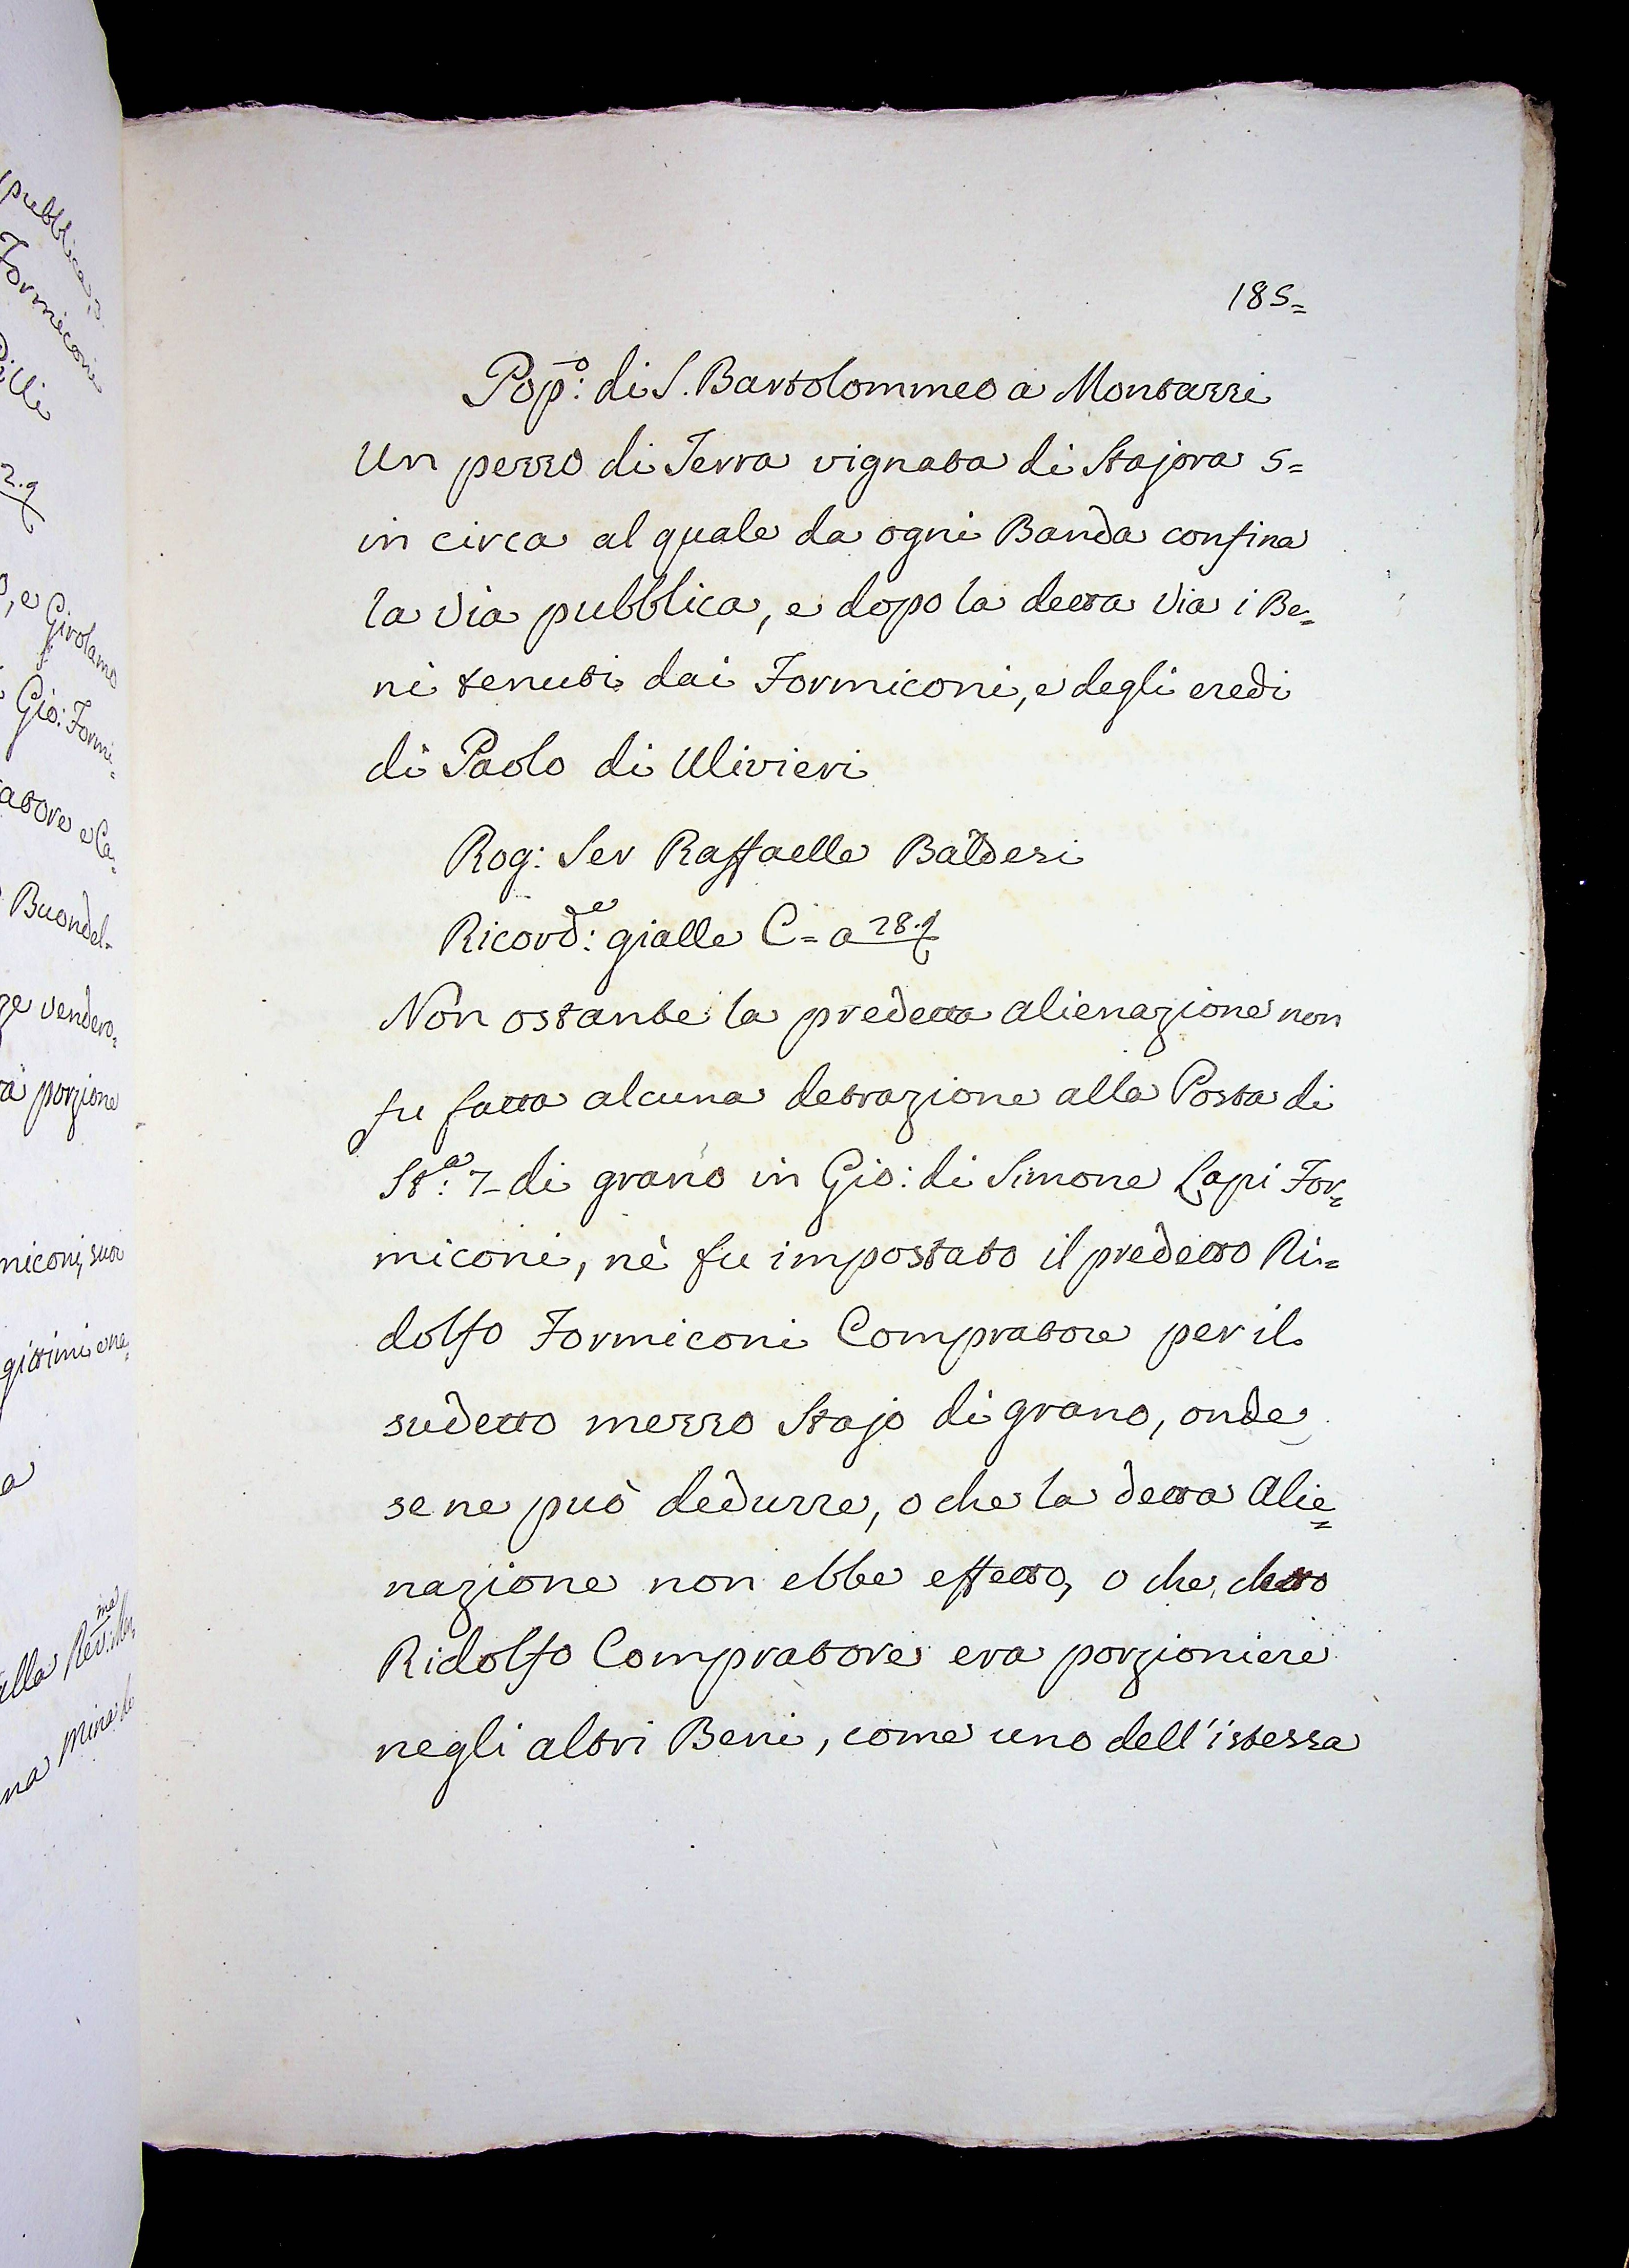 pubblica,
Formiconi
2.9
o, e Girolamo
Gio: Formi-
atore e Ca-
Buondel-
ze vendero-
ra porzione
miconi, suoi
gittimi
a
alla Rev.ma
na
185=
Pop:o di S. Bartolommeo a Montazzi
Un pezzo di Terra vignata di Stajora 5=
in circa al quale da ogni Banda confina
la Via pubblica, e dopo la detta Via i Be=
ni tenuti dai Formiconi, e degli eredi
di Paolo di Ulivieri
Rog: Ser Raffaelle Baldesi
Ricord:e gialle C= a 28.
Non ostante la predetta alienazione non
fu fatta alcuna detrazione alla Posta di
St:a 7- di grano in Gio: di Simone Lapi For=
miconi, nè fu impostato il predetto Ri=
dolfo Formiconi Compratore per il
sudetto mezzo Stajo di grano, onde
se ne può dedurre, o che la detta Alie=
nazione non ebbe effetto, o che detto
Ridolfo Compratore era porzioniere
negli altri Beni, come uno dell'istessa